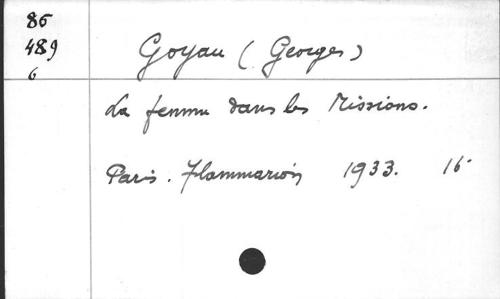 86
489
6
Goyau (Georges)
La femme dans les Missions.
Paris. Flammarion 1933. 16°